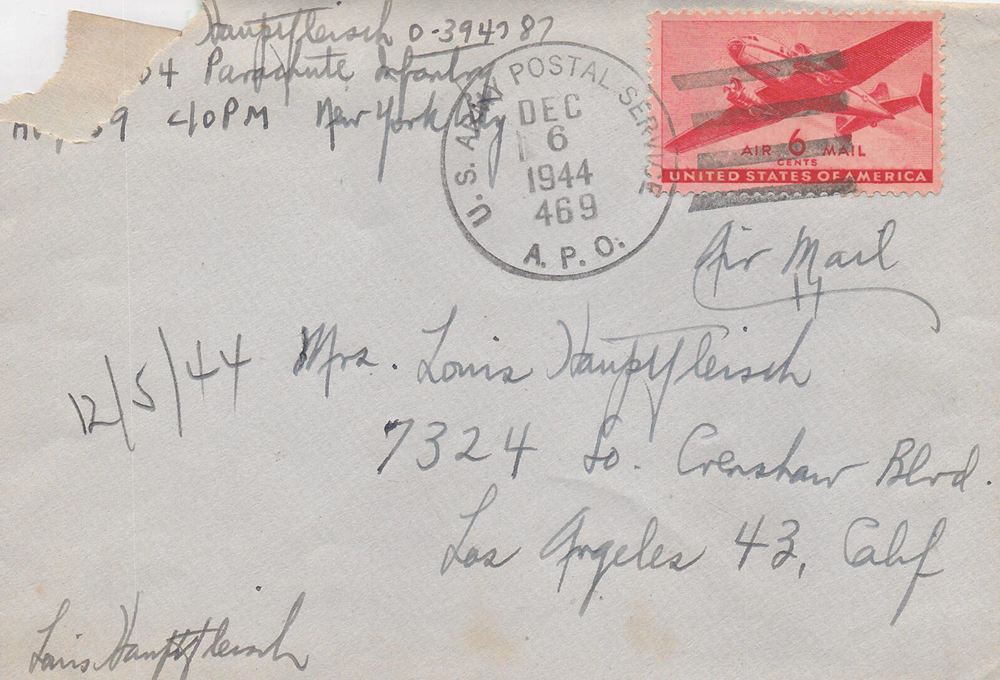 Hauptfleisch O-394787
04 Parachute Infantry
9 c/o PM New York City
U.S. ARMY POSTAL SERVICE
DEC
6
1944
469
A.P.O.
AIR 6 MAIL
CENTS
UNITED STATES OF AMERICA
Air Mail
12/5/44
Mrs. Louis Hauptfleisch
7324 So. Crenshaw Blvd.
Los Angeles 43, Calif
Louis Hauptfleisch